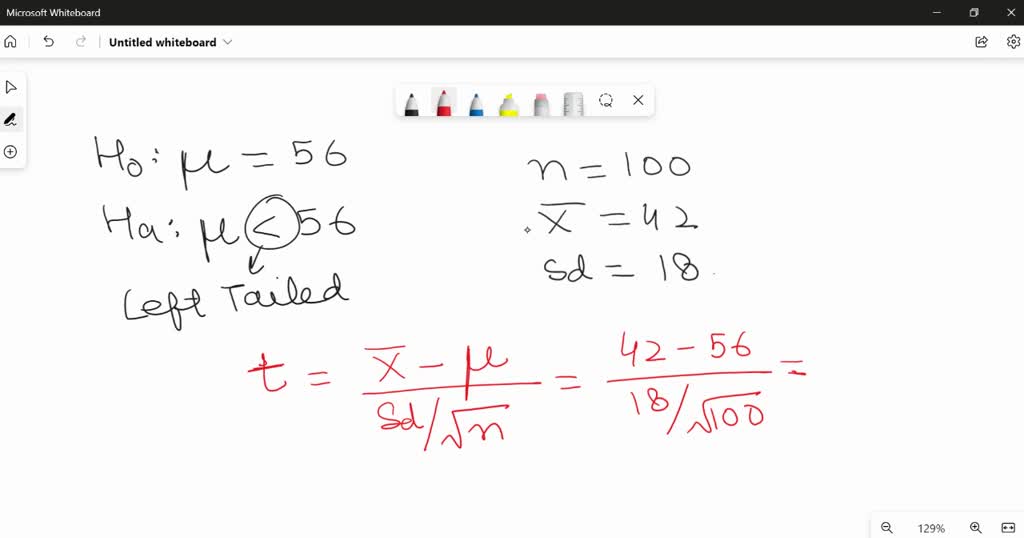 Microsoft Whiteboard
Untitled whiteboard
H₀: μ = 56
n = 100
Ha: μ < 56
x̅ = 42
Left Tailed
sd = 18
t = (x̅ - μ) / (Sd/√n) = (42 - 56) / (18/√100) =
129%